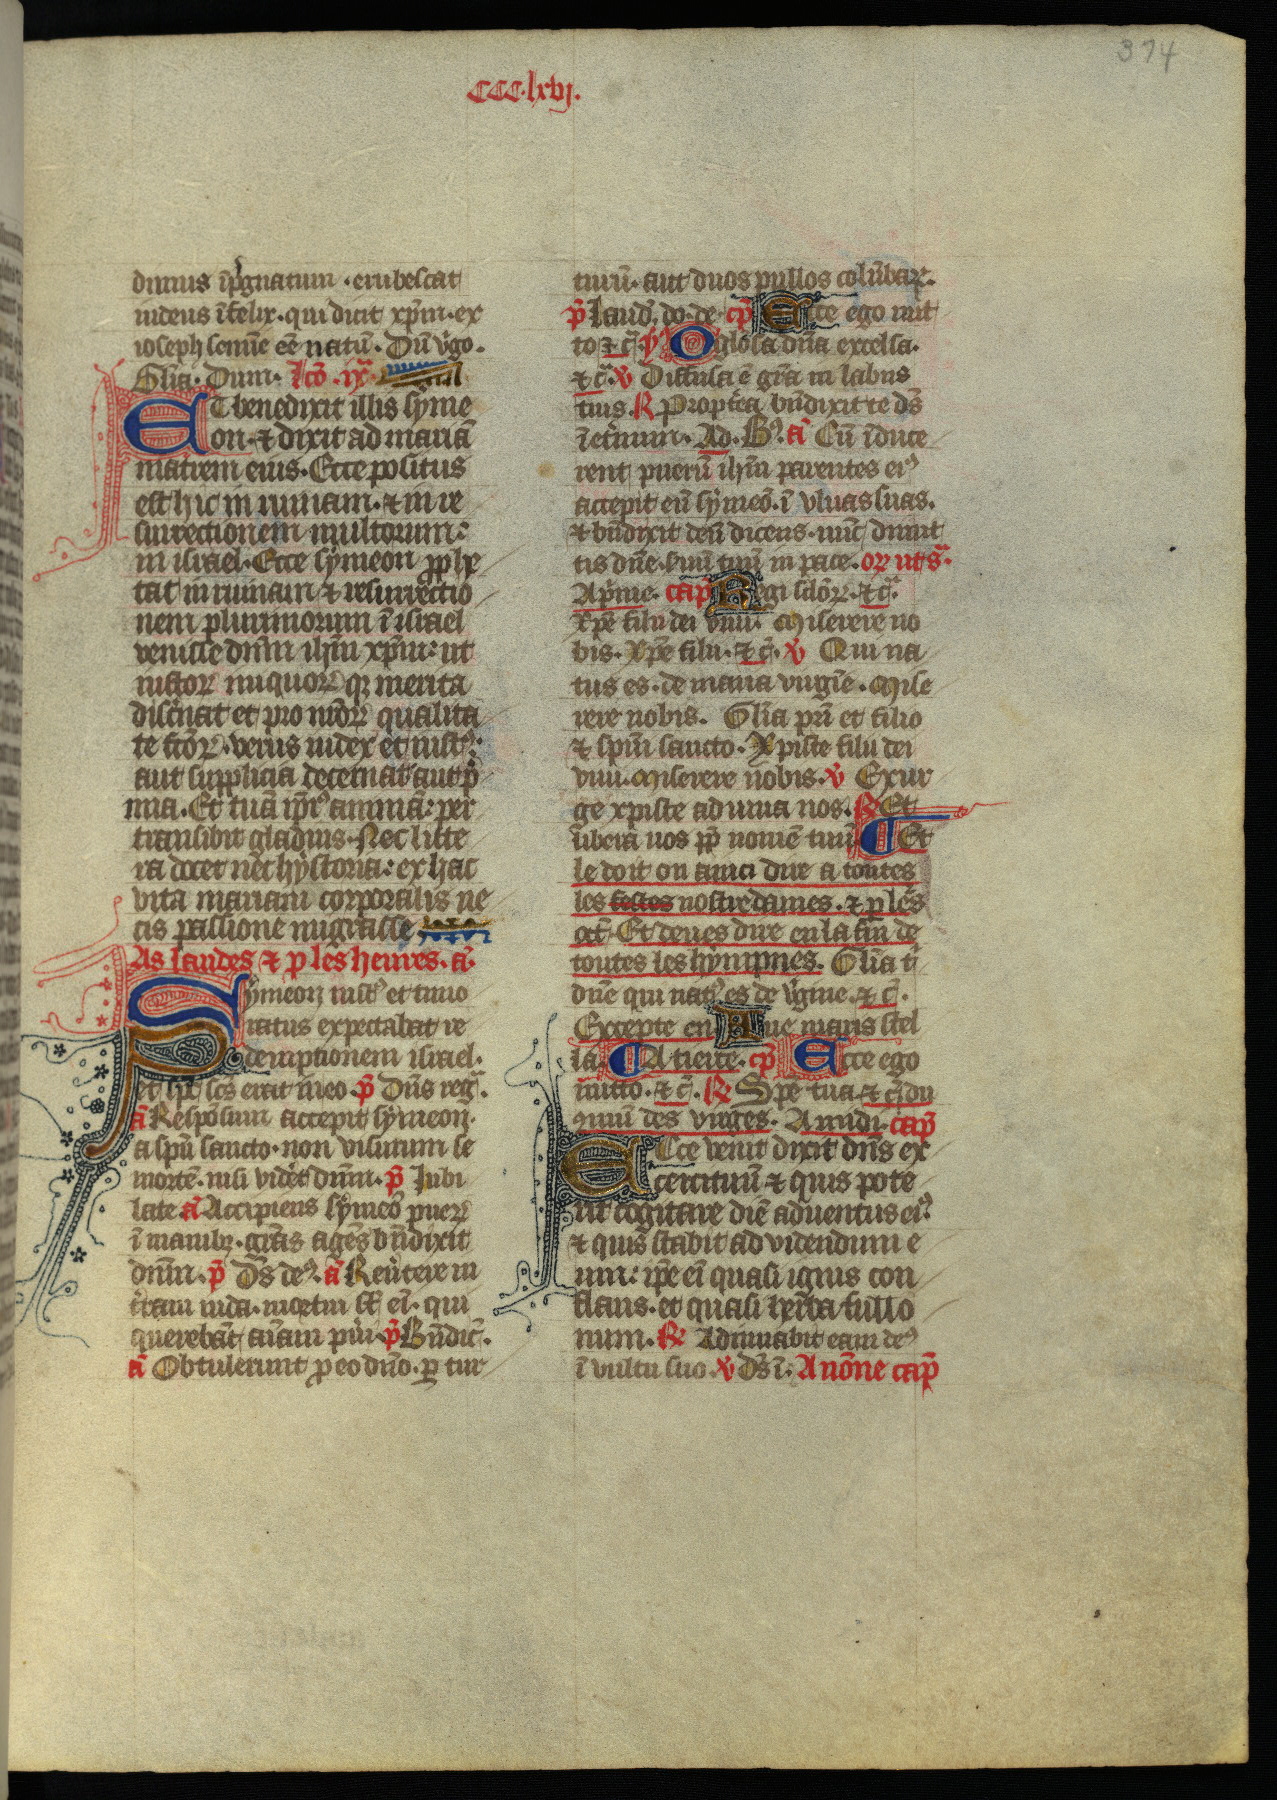 374
CCC.lxvj.
dimus īp̄gnatum . erubescat
iudeus īfelix . qui dicit xp̄m . ex
ioseph semīe eē natū . Dū v̄go .
Glīa . Dum . lcō . ix.ͣ
Et benedixit illis syme
on . ⁊ dixit ad mariā
matrem eius . Ecce positus
est hic in ruinam . ⁊ in re
surrectionem multorum :
in israel . Ecce symeon p̄phe
tat in ruinam ⁊ resurrectio
nem plurimorum ī israel
venisse dn̄m ih̄m xp̄m : ut
iustoꝝ iniquoꝝ qꝫ merita
discernat et pro nr̄oꝝ qualita
te fc̄oꝝ . verus iudex et iust᷒ :
aut supplicia decernat aut p̄
mia . Et tuā ip̄i᷒ animā : per
transibit gladius . Nec litte
ra docet nec hystoria : ex hac
vita mariam corporalis ne
cis passione migrasse
As laudes ⁊ p les heures . ā.
Symeon iust᷒ et timo
ratus expectabat re
demptionem israel .
et sp̄c sc̄s erat in eo . p̄ Dn̄s regͣ .
ā Respōsum accepit symeon .
a sp̄u sancto . non visurum se
mortē . nisi vider̄et dn̄m . p̄ Iubi
late ā Accipiens symeō pueꝝ
ī manibꝫ . gr̄as agēs bn̄dixit
dn̄m . p̄ Ds̄ de᷒ . ā Reūtere in
tr̄am iuda . mortui sūt eī . qui
querebāt aīam pūi . p̄ Bn̄dic̄ .
ā Obtulerunt p eo dn̄o . par tur
turū . aut duos pullos colūbarꝫ .
p̄ laud̄ . do . de cp̄ Ecce ego mit
to ⁊ c̄ . ȳ O glōsa dn̄a excelsa .
⁊ c̄ . v̄ Diffusa ē gr̄a in labiis
tuis . R̸ Propt̄ea bn̄dixit te ds̄
īet̄num . Ad . B᷒ . ā Cū īduce
rent puerū ih̄m parentes ei᷒
accepit eū symeō . ī vlnas suas .
⁊ bn̄dixit deū dicens . nūc dimit
tis dn̄e . seruū tuū in pace . oꝝ ut sͣ.
A p̄me . cap̄ Regi sc̄loꝝ . ⁊ c̄ .
Xp̄e filii dei viui . Miserere no
bis . Xp̄e filii . ⁊ c̄ . v̄ Qui na
tus es . de maria virgīe . Mise
rere nobis . Glīa pr̄i et filio
⁊ sp̄ui sancto . Xpiste filii dei
viui . Miserere nobis . v̄ Exur
ge xpiste adiuua nos . R̸ Et
libera nos p̄p nomē tuū ¶ Et
le doit on ainci dire a toutes
les festes nostre dames . ⁊ p les
oct̄ . Et deues dire en la fin de
toutes les hympnes . Glīa t̄i
dn̄e qui nat᷒ es de v̄gine . ⁊ c̄ .
Excepte en Aue maris stel
la . ¶ A tierce . cp̄ Ecce ego
mitto . ⁊ c̄ . R̸ Spē tua ⁊ c̄ . du
mun des virges . A midi . cap̄
Ecce venit dixit dn̄s ex
cercituū ⁊ quis pote
rit cogitare diē aduentus ei᷒ .
⁊ quis stabit ad videndum e
um : ip̄e eī quasi ignis con
flans . et quasi herba fullo
num . R̸ Adiuuabit eam de᷒
ī vultu suo . v̄ Ds̄ ī . A nōne cap̄